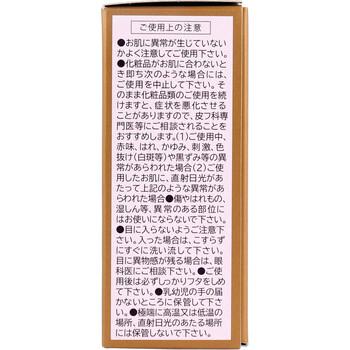 ご使用上の注意
●お肌に異常が生じていない
かよく注意してご使用下さい。
●化粧品がお肌に合わないと
き即ち次のような場合には、
ご使用を中止して下さい。そ
のまま化粧品類のご使用を続
けますと、症状を悪化させる
ことがありますので、皮フ科専
門医等にご相談されることを
おすすめします。(1)ご使用中、
赤味、はれ、かゆみ、刺激、色
抜け(白斑等)や黒ずみ等の異
常があらわれた場合(2)ご使
用したお肌に、直射日光があ
たって上記のような異常があ
らわれた場合●傷やはれもの、
湿しん等、異常のある部位に
はお使いにならないで下さい。
●目に入らないようご注意下
さい。入った場合は、こすらず
にすぐに洗い流して下さい。
目に異物感が残る場合は、眼
科医にご相談下さい。●ご使
用後は必ずしっかりフタをしめ
て下さい。●乳幼児の手の届
かないところに保管して下さい。
●極端に高温又は低温の
場所、直射日光のあたる場所
には保管しないで下さい。